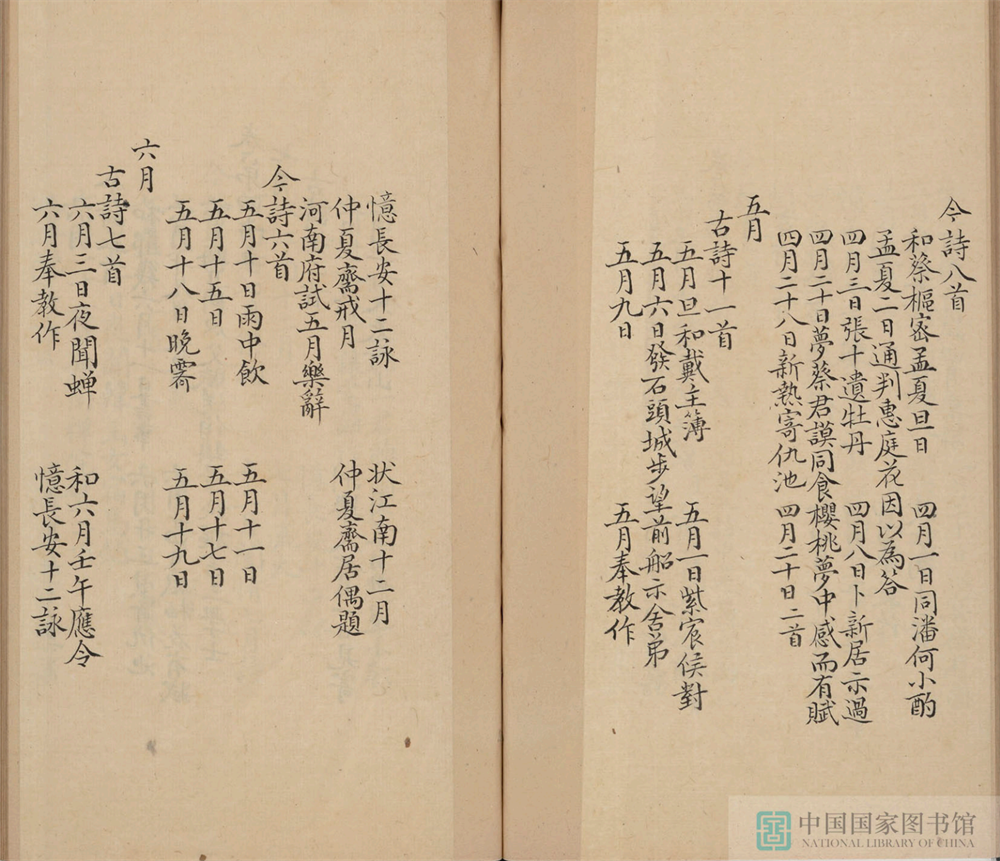 今詩八首
和蔡樞密孟夏旦日 四月一日同潘何小酌
孟夏二日通判惠庭花因以為答
四月三日張十遺牡丹 四月八日卜新居示過
四月二十日夢蔡君謨同食櫻桃夢中感而有賦
四月二十八日新熟寄仇池 四月二十日二首
五月
古詩十一首
五月旦和戴主簿 五月一日紫宸候對
五月六日發石頭城步望前船示舍弟
五月九日 五月奉教作
憶長安十二詠 状江南十二月
仲夏齋戒月 仲夏齋居偶題
河南府試五月樂辭
今詩六首
五月十日雨中飲 五月十一日
五月十五日 五月十七日
五月十八日晚霽 五月十九日
六月
古詩七首
六月三日夜聞蝉 和六月壬午應令
六月奉教作 憶長安十二詠
中国国家图书馆
NATIONAL LIBRARY OF CHINA